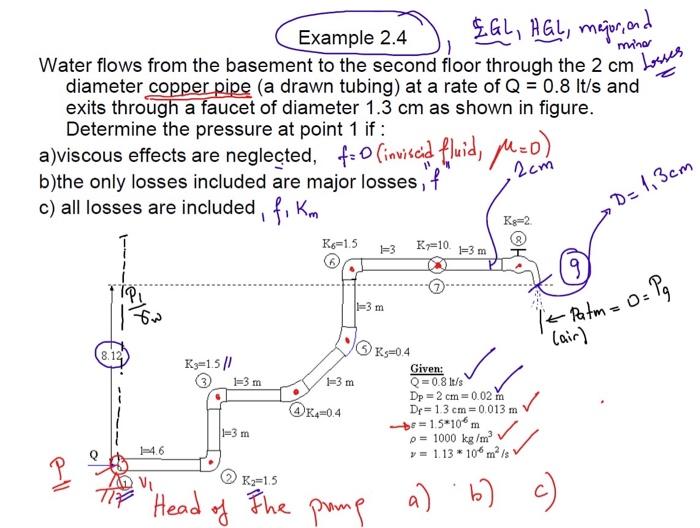 Example 2.4
, EGL, HGL, major, and
minor
Losses
Water flows from the basement to the second floor through the 2 cm
diameter copper pipe (a drawn tubing) at a rate of Q = 0.8 lt/s and
exits through a faucet of diameter 1.3 cm as shown in figure.
Determine the pressure at point 1 if :
a)viscous effects are neglected, f=0 (inviscid fluid, μ=0)
b)the only losses included are major losses, "f"
2cm
c) all losses are included, f, Km
D=1,3cm
K6=1.5 l=3 K7=10. l=3 m K8=2.
6 8
9
7
P1
γw
l=3 m
Patm = 0 = P9
(air)
8.12
K3=1.5 //
5 K5=0.4
3 l=3 m l=3 m
4 K4=0.4
Given:
Q = 0.8 lt/s
Dp = 2 cm = 0.02 m
Df = 1.3 cm = 0.013 m
ε = 1.5*10⁻⁶ m
ρ = 1000 kg/m³
ν = 1.13 * 10⁻⁶ m²/s
l=3 m
Q l=4.6
P
1 V1
2 K2=1.5
Head of the pump a) b) c)